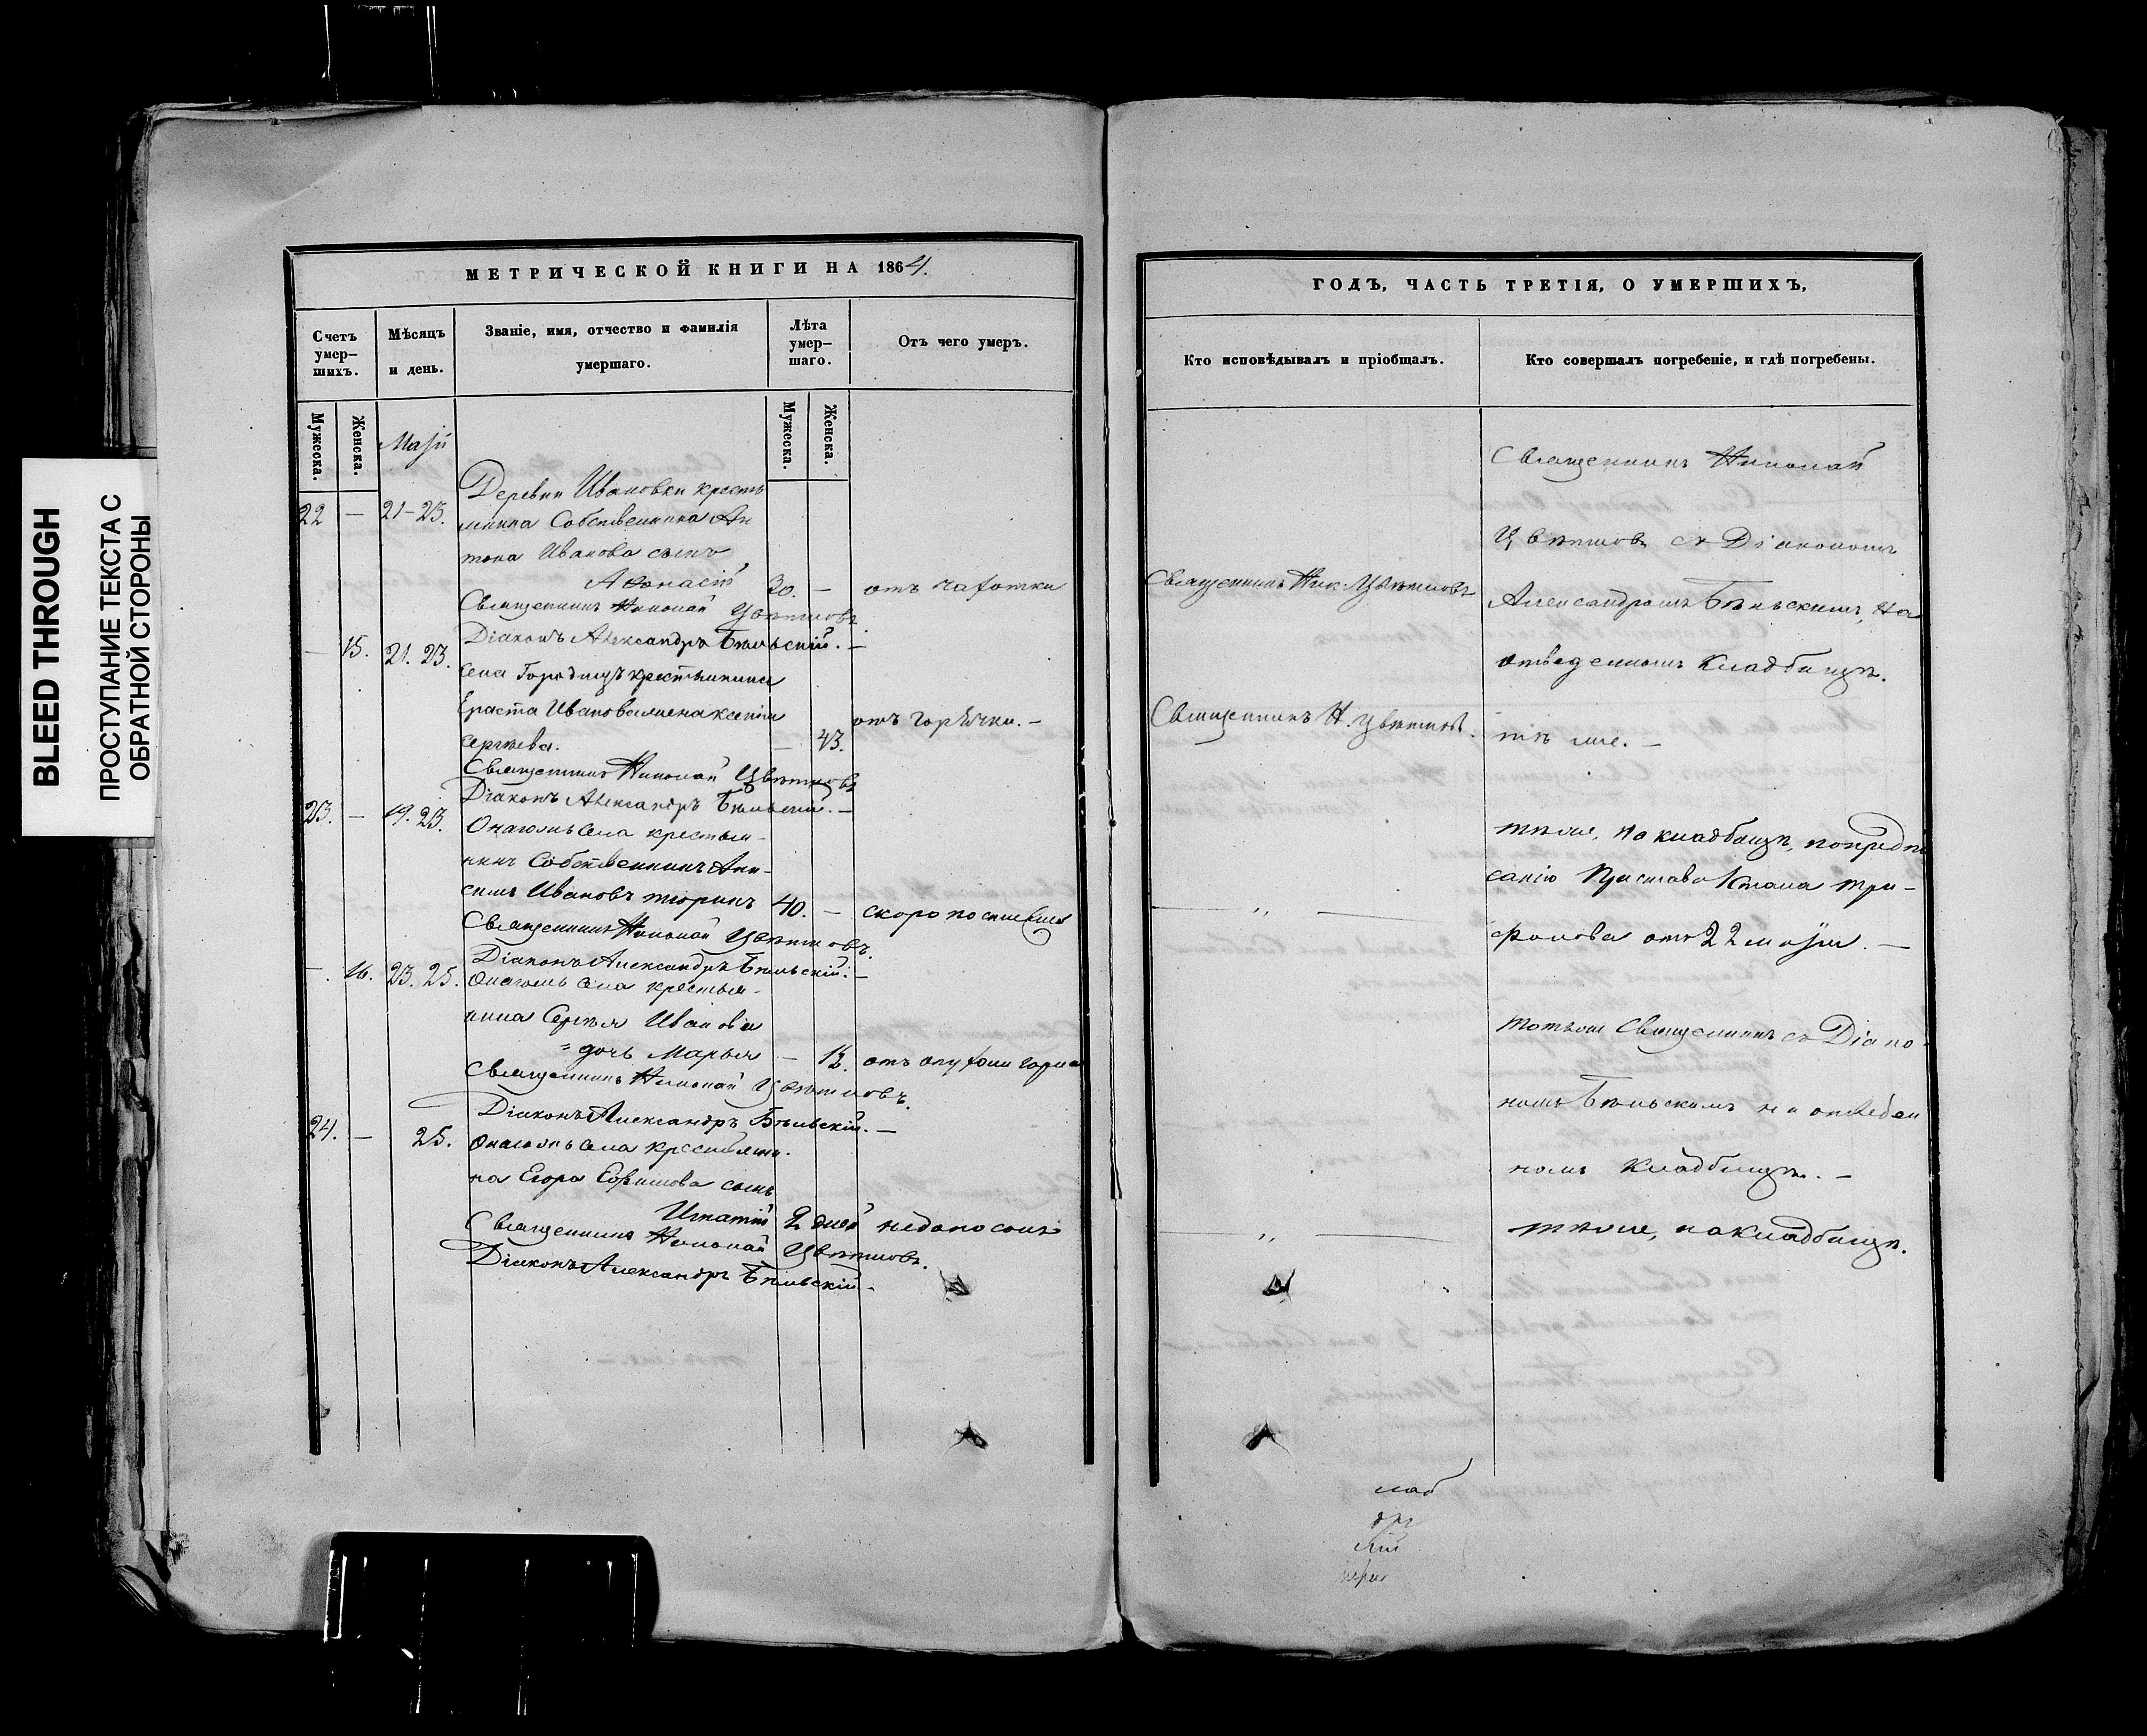 BLEED THROUGH
ПРОСТУПАНИЕ ТЕКСТА С
ОБРАТНОЙ СТОРОНЫ
МЕТРИЧЕСКОЙ КНИГИ НА 1864.
Счетъ умер-шихъ.
Мѣсяцъ и день.
Званіе, имя, отчество и фамилія умершаго.
Лѣта умер-шаго.
Отъ чего умеръ.
Мужеска.
Женска.
Мужеска.
Женска.
Маій
22 — 21-23.
Деревни Ивановки кресть
янина Собственника Ан
тона Иванова сынъ
Афонасій 30. — отъ чахотки
Священникъ Николай Цвѣтковъ.
Діаконъ Александръ Бѣльскій. —
— 15. 21. 23.
села Городищъ крестьянина
Ераста Иванова жена Ксенія
Сергѣева. — 43. отъ горячки. —
Священникъ Николай Цвѣтковъ
Діаконъ Александръ Бѣльскій. —
23. — 19. 23.
Онагожъ села крестья-
нинъ Собственникъ Ани-
симъ Ивановъ Тюринъ 40. — скоропостижно
Священникъ Николай Цвѣтковъ.
Діаконъ Александръ Бѣльскій. —
—. 16. 23. 25.
Онагожъ села крестья-
нина Сергѣя Иванова
дочь Марья — 12. отъ опухоли горла
Священникъ Николай Цвѣтковъ.
Діаконъ Александръ Бѣльскій. —
24. — 25.
Онагожъ села крестьяни-
на Егора Ефимова сынъ
Игнатій 2 дней недоносокъ
Священникъ Николай Цвѣтковъ.
Діаконъ Александръ Бѣльскій. -
ГОДЪ, ЧАСТЬ ТРЕТІЯ, О УМЕРШИХЪ,
Кто исповѣдывалъ и пріобщалъ.
Кто совершалъ погребеніе, и гдѣ погребены.
Священникъ Николай
Цвѣтковъ съ Діакономъ
Священникъ Ник. Цвѣтковъ
Александромъ Бѣльскимъ, на
отведенномъ кладбищѣ.
Священникъ Н. Цвѣтковъ.
тѣ же. —
тѣже, на кладбищѣ, по предпи
санію Пристава 1 стана Три-
— „ —
фонова отъ 22 маія. —
тотъже Священникъ съ Діако
номъ Бѣльскимъ на отведен
номъ кладбищѣ. —
— „ —
тѣже, на кладбищѣ.